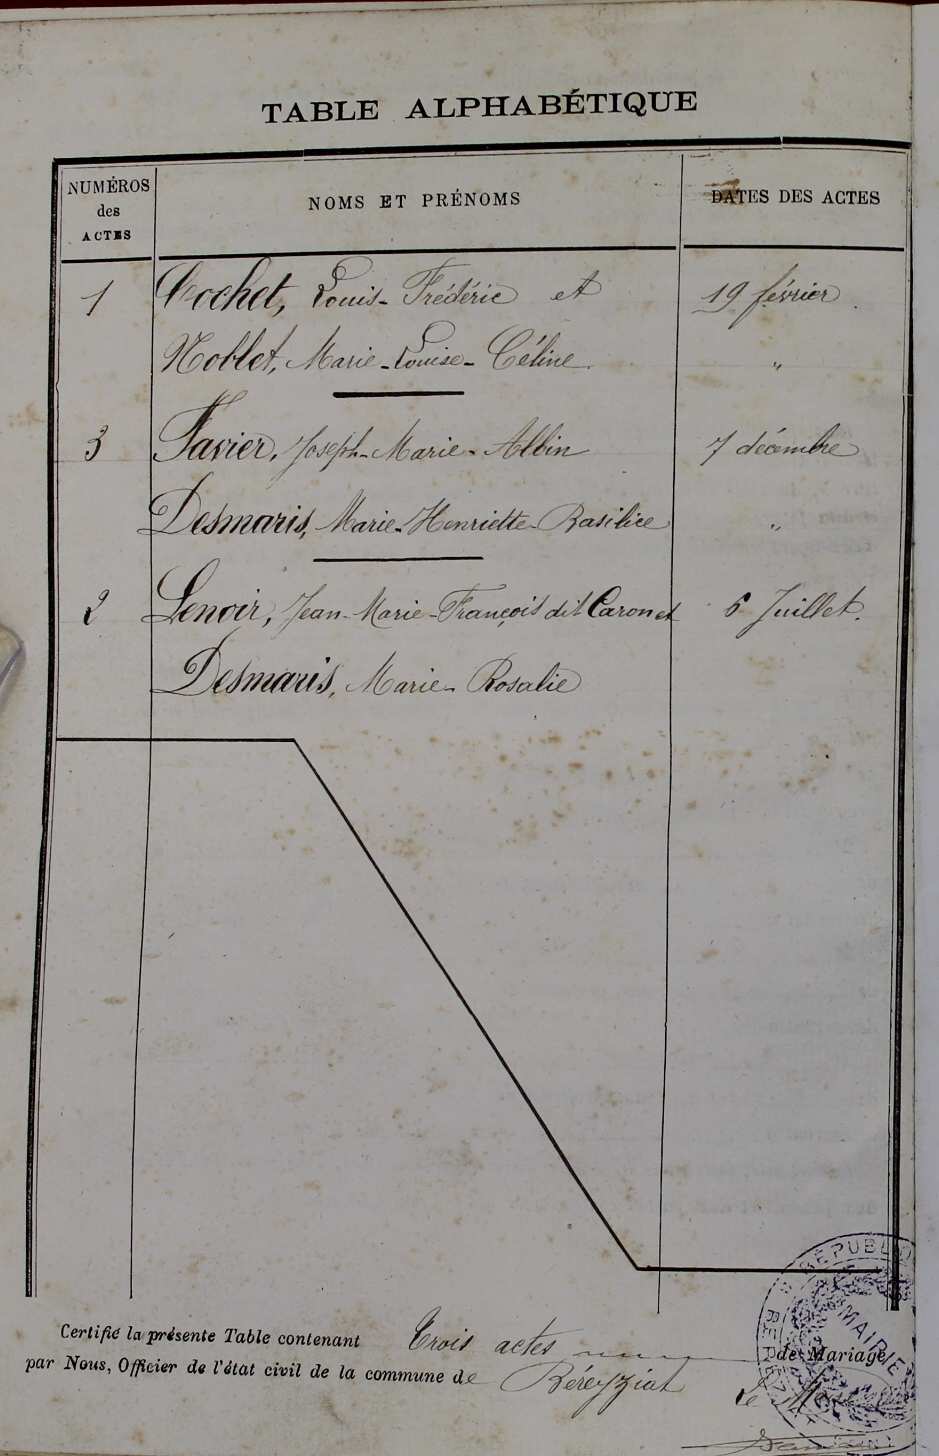 TABLE ALPHABÉTIQUE
NUMÉROS des ACTES NOMS ET PRÉNOMS DATES DES ACTES
1 Cochet, Louis-Frédéric et 19 février
Noblet, Marie-Louise-Céline. "
3 Favier, Joseph-Marie-Albin 7 décembre
Desmaris, Marie-Henriette-Basilice "
2 Lenoir, Jean-Marie-François dit Caron et 6 Juillet.
Desmaris, Marie-Rosalie
Certifié la présente Table contenant Trois actes de Mariage
par Nous, Officier de l'état civil de la commune de Béreyziat
Le Maire
RÉPUBLIQ
MAIRIE